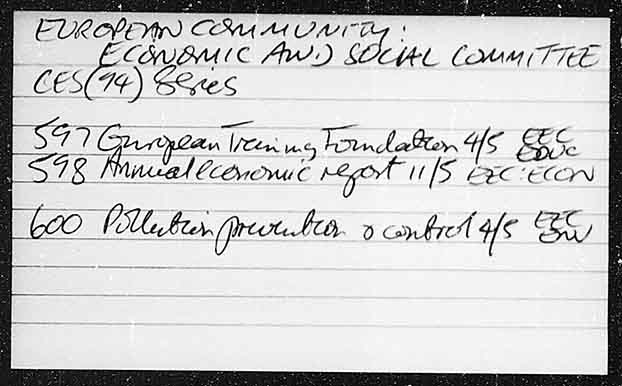 EUROPEAN COMMUNITY:
ECONOMIC AND SOCIAL COMMITTEE
CES(94) Series
597 European Training Foundation 4/5 EEC EDUC
598 Annual economic report 11/5 EEC:ECON
600 Pollution prevention & control 4/5 EEC ENV